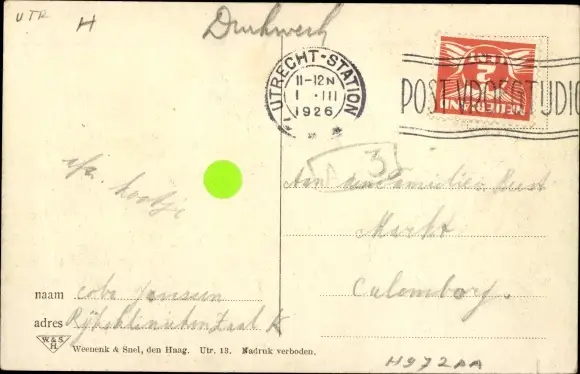 UTR
H
Drukwerk
UTRECHT-STATION
11-12N
1 .III
1926
POST VROEGTIJDIG
NEDERLAND
3
Aan den Familie
Markt
Culemborg.
naam Coba Janssen
adres Rijksklinieken Zaal K
W. & S.
H.
Weenenk & Snel, den Haag. Utr. 13. Nadruk verboden.
H972AA